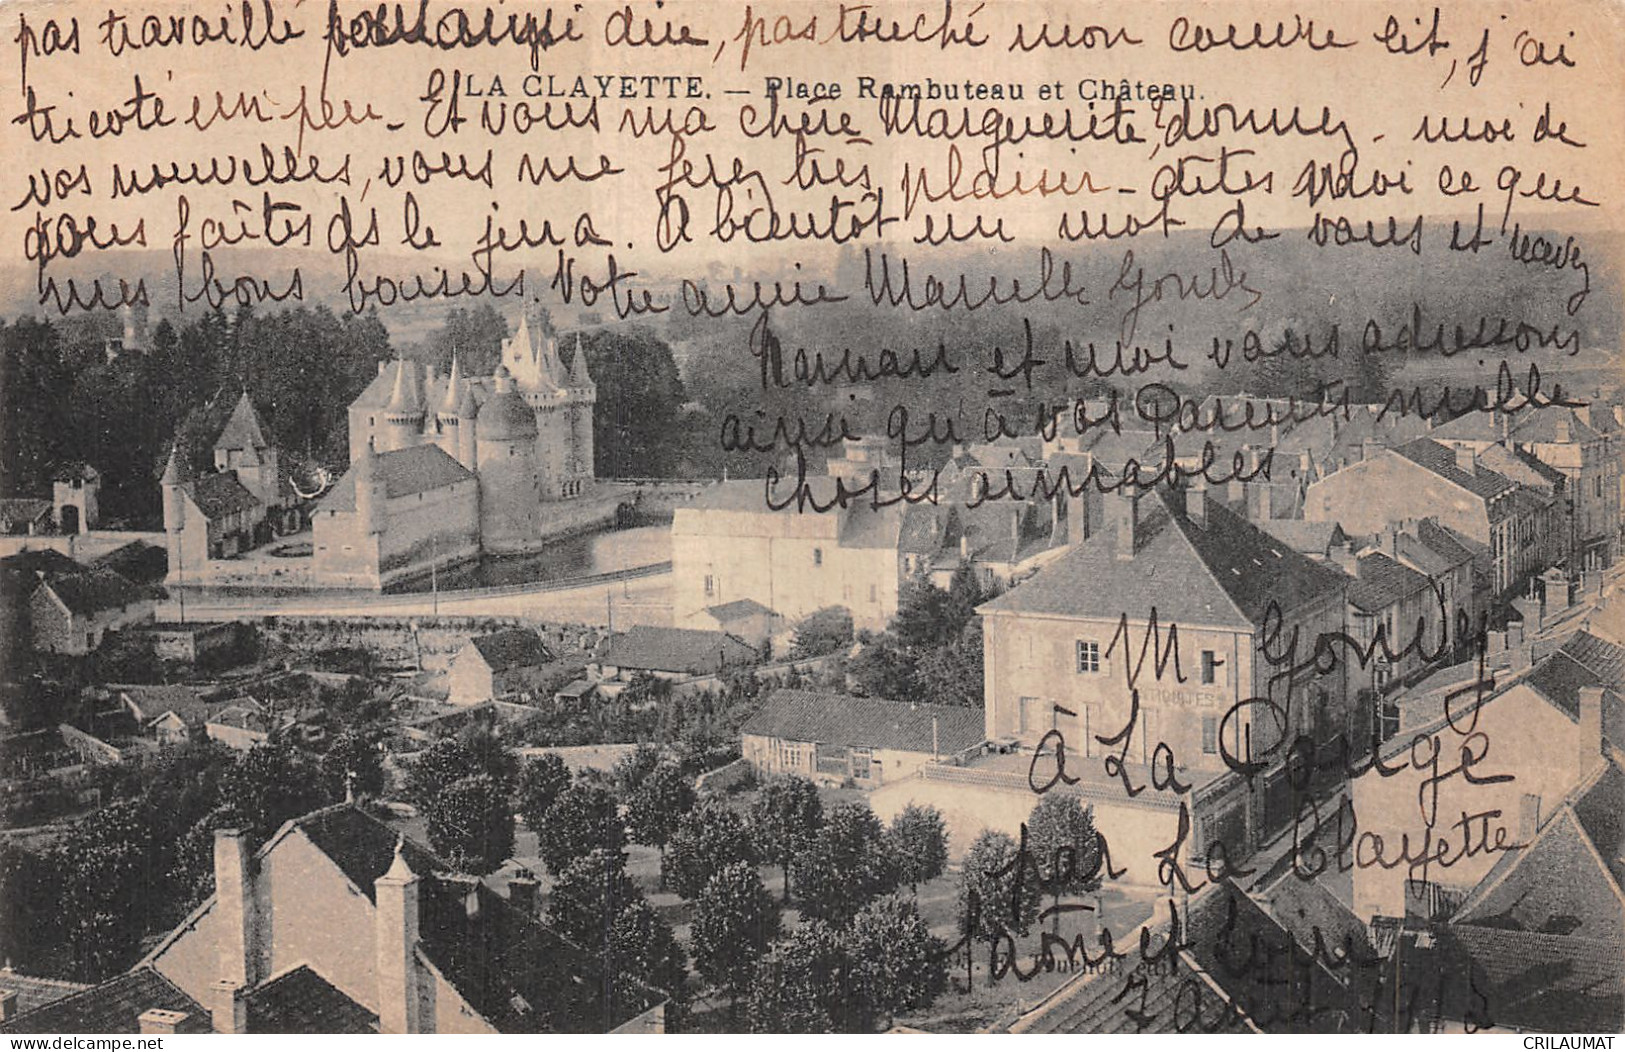 pas travaillé pour ainsi dire, pas touché mon couvre lit, j'ai
LA CLAYETTE. — Place Rambuteau et Château.
tricoté un peu - Et vous ma chère Marguerite, donnez-moi de
vos nouvelles, vous me ferez très plaisir - dites moi ce que
vous faites ds le jura. A bientôt un mot de vous et recevez
mes bons baisers. Votre amie Marcelle Gondy
Maman et moi vous adressons
ainsi qu'à vos Parents mille
choses aimables.
M. Gondy
ANTIQUITES
à La Pouge
par La Clayette
Saône et Loire
édit.
7 août 1913
CRILAUMAT